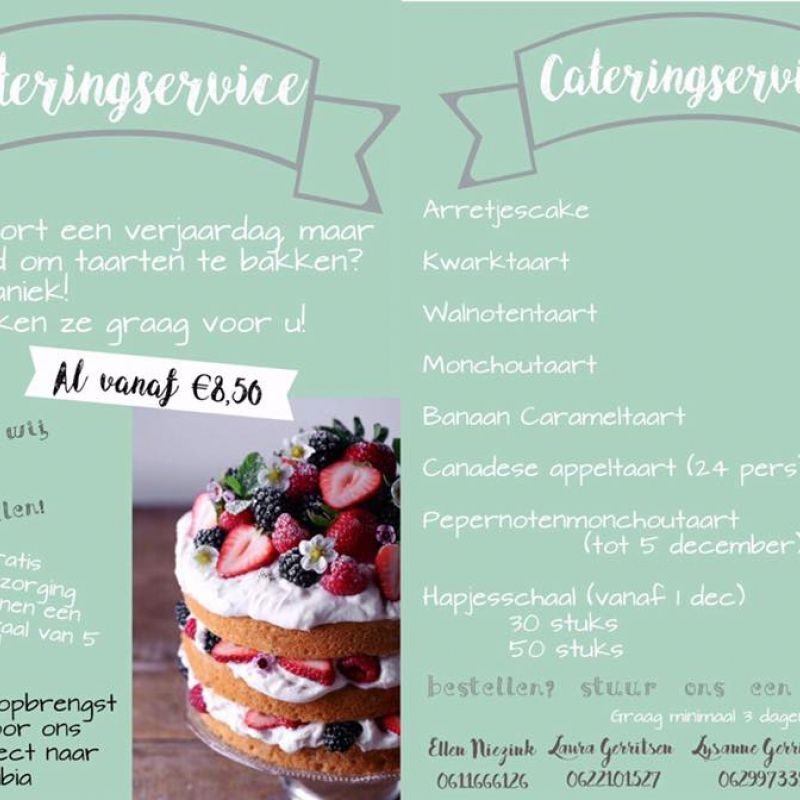 teringservice
ort een verjaardag, maar
d om taarten te bakken?
aniek!
ken ze graag voor u!
Al vanaf €8,50
wij
llen!
ratis
zorging
nen een
aal van 5
opbrengst
oor ons
ect naar
bia
Cateringservi
Arretjescake
Kwarktaart
Walnotentaart
Monchoutaart
Banaan Carameltaart
Canadese appeltaart (24 pers)
Pepernotenmonchoutaart
(tot 5 december)
Hapjesschaal (vanaf 1 dec)
30 stuks
50 stuks
bestellen? stuur ons een
Graag minimaal 3 dagen
Ellen Niezink Laura Gerritsen Lysanne Gerri
0611666126 0622101527 062997339